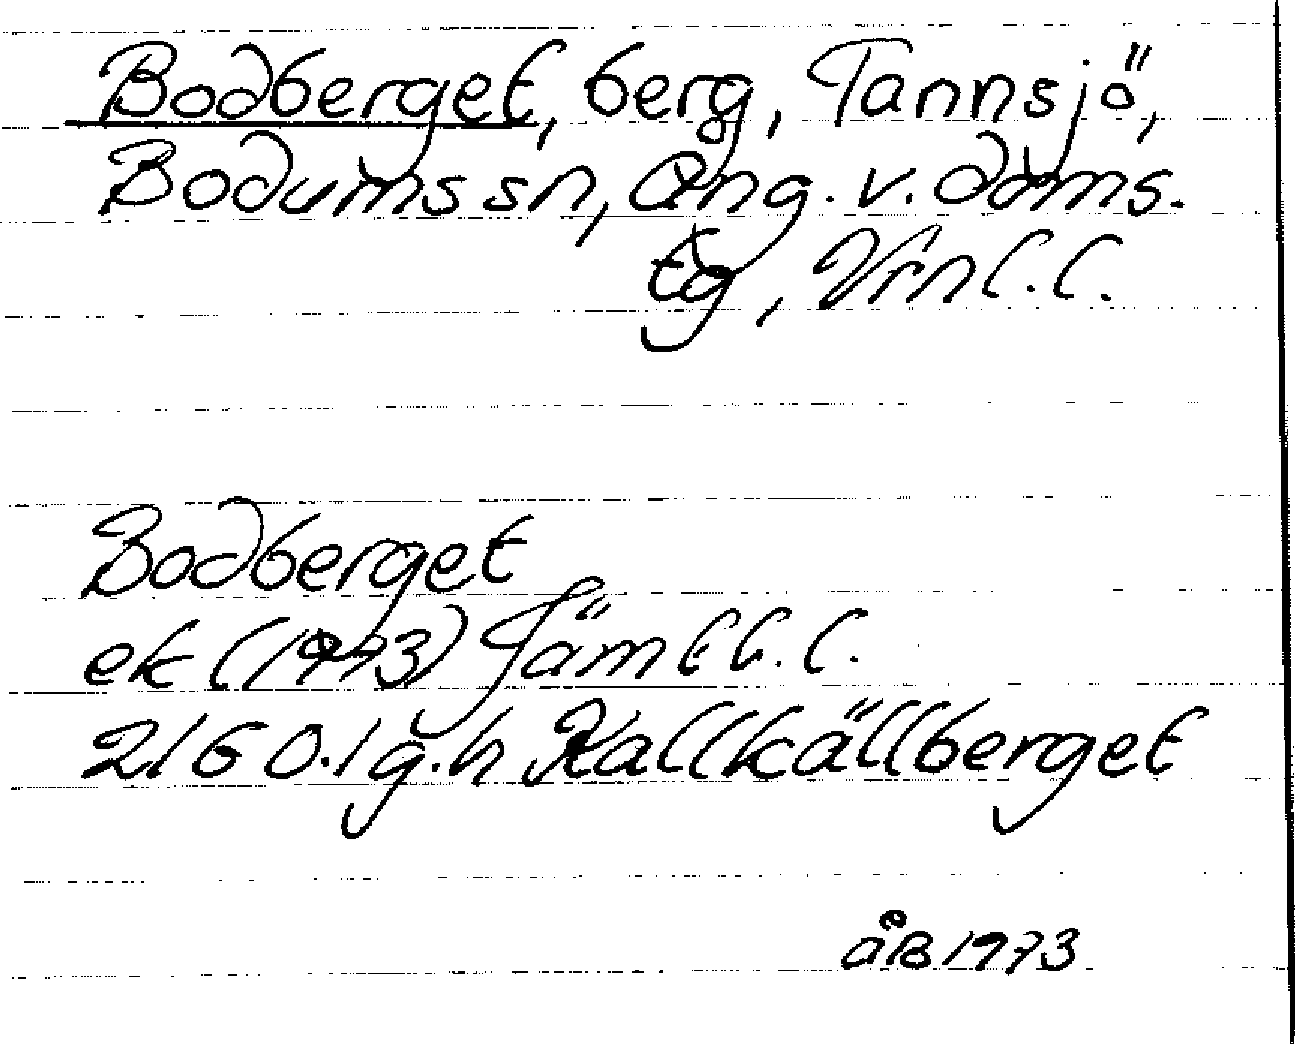 Bodberget, berg, Tannsjö,
Bodums sn, Ång. v. doms.
tg, Vrnl.l.
Bodberget
ek (1973) Jämtl.l.
2160.1g.h Kallkällberget
åB 1973